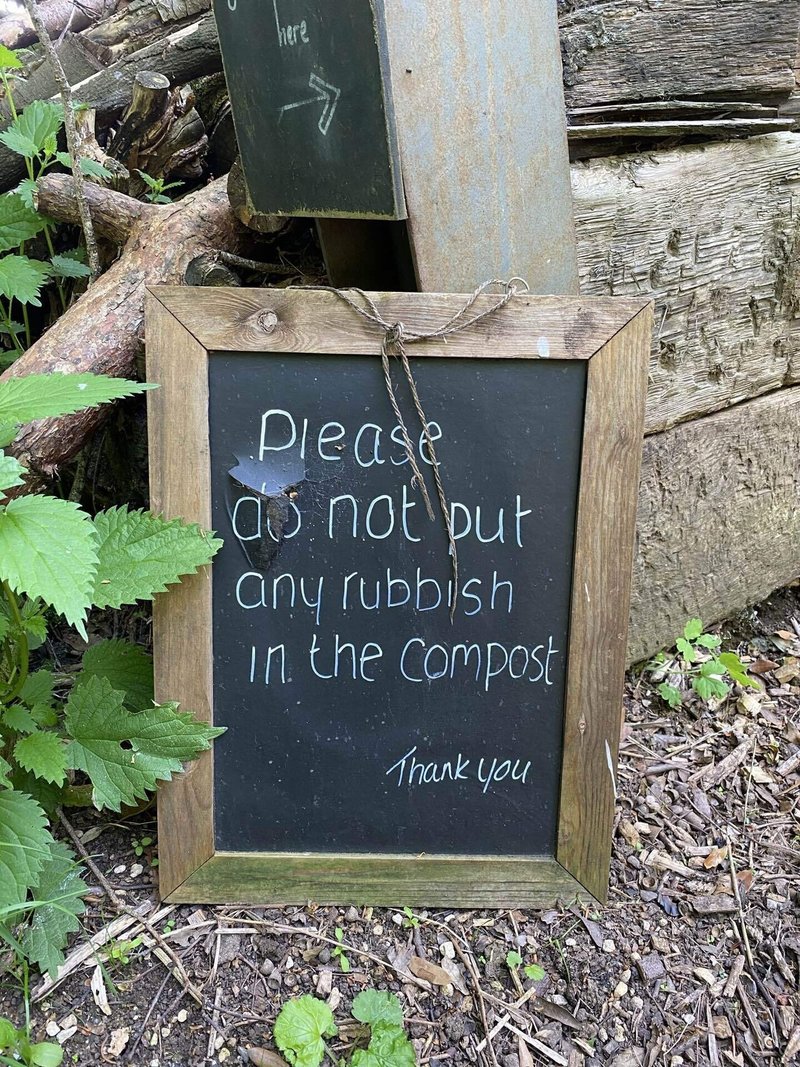 here
Please
do not put
any rubbish
in the compost
Thank you